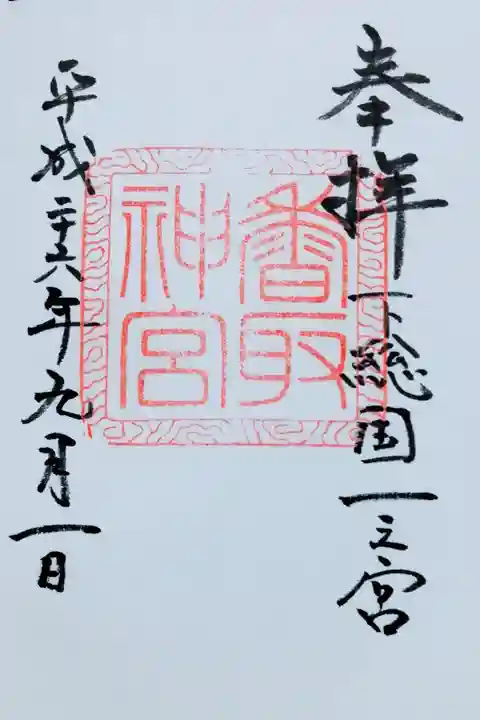 奉拝
下総国一之宮
香取
神宮
平成二十六年九月一日